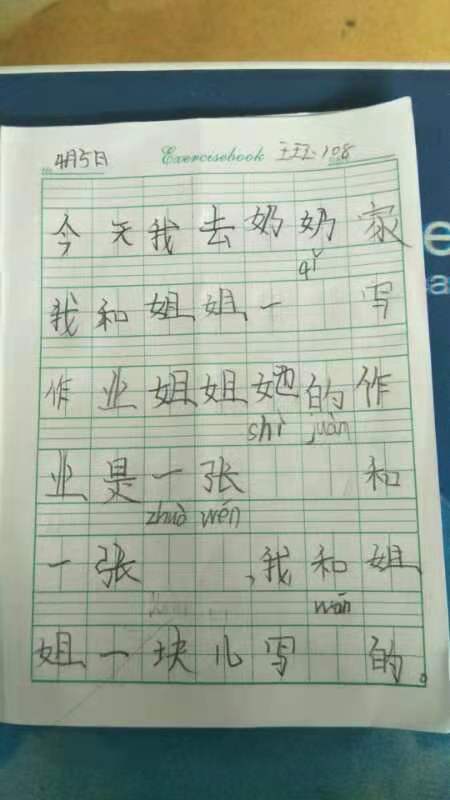 4月5日 Exercisebook 王王王-108
今天我去奶奶家
qǐ
我和姐姐一 写
作业姐姐她的作
shì juàn
业是一张 和
zhuò wén
一张 ,我和姐
wán
姐一块儿写 的。
e
sa